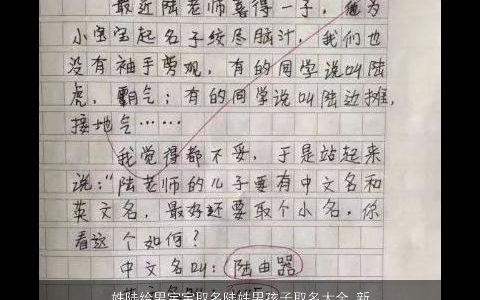 最近陆老师喜得一子，他为
小宝宝起名子绞尽脑汁，我们也
没有袖手旁观，有的同学说叫陆
虎，霸气；有的同学说叫陆边摊，
接地气……
我觉得都不妥，于是站起来
说：“陆老师的儿子要有中文名和
英文名，最好还要取个小名，你
看这个如何？
中文名叫：陆由器
姓陆给男宝宝取名陆姓男孩子取名大全 新